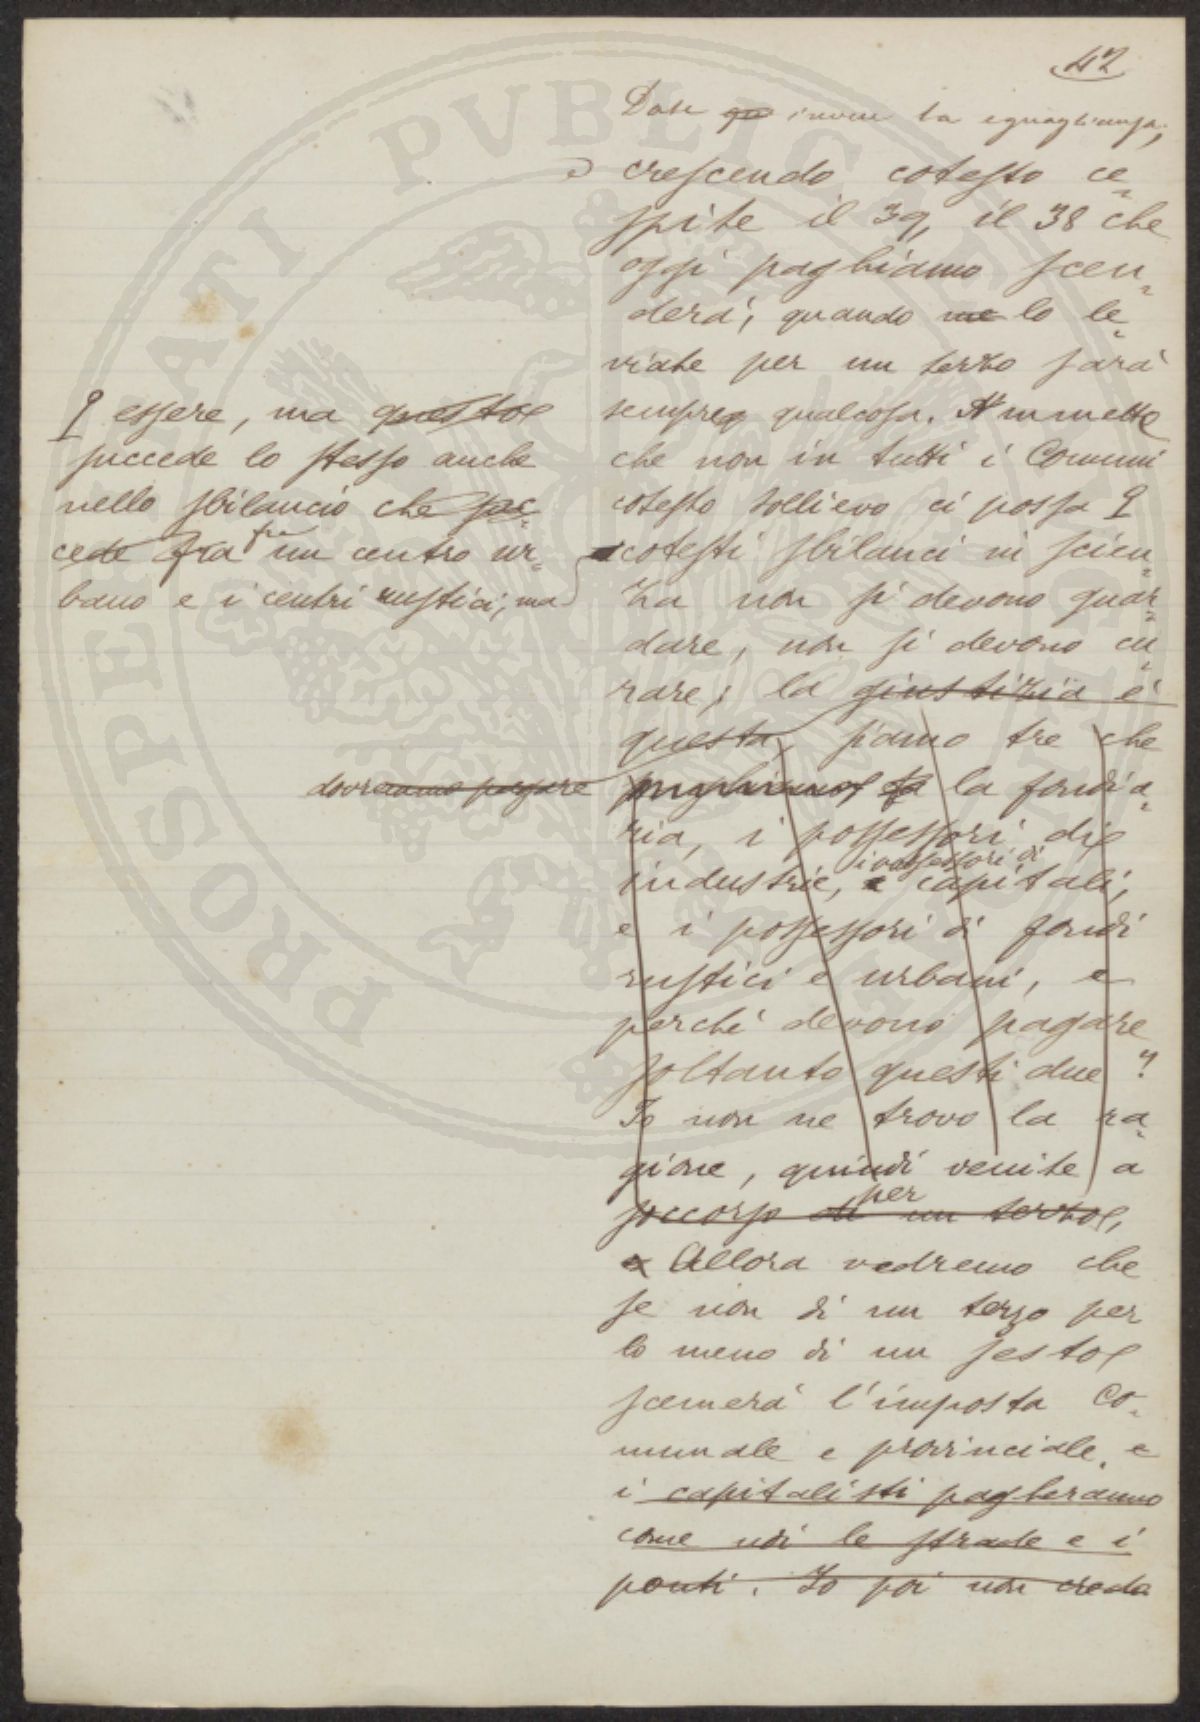 42
Date invece la eguaglianza;
crescendo cotesto ce-
spite il 39, il 38 che
oggi paghiamo scen-
derà; quando me lo le-
viate per un terzo sarà
sempre qualcosa. Ammetto
che non in tutti i Comuni
cotesto sollievo ci possa
essere, ma questo
succede lo stesso anche
nello sbilancio che suc-
cede fra fra un centro ur-
bano e i centri rustici; ma
cotesti sbilanci in scien-
za non si devono guar-
dare, non si devono cu-
rare; la giustizia è
questa, siamo tre che
dovremmo pagare
paghiamo la la fondia-
ria, i possessori di
i possessori di
industrie, e capitali,
e i possessori di fondi
rustici e urbani, e
perché devono pagare
soltanto questi due?
Io non ne trovo la ra-
gione, quindi venite a
per
soccorso di un terzo,
Allora vedremo che
se non di un terzo per
lo meno di un sesto
scemerà l'imposta Co-
munale e provinciale, e
i capitalisti pagheranno
come noi le strade e i
ponti. Io poi non credo
PROSPERITATI PVBLICAE